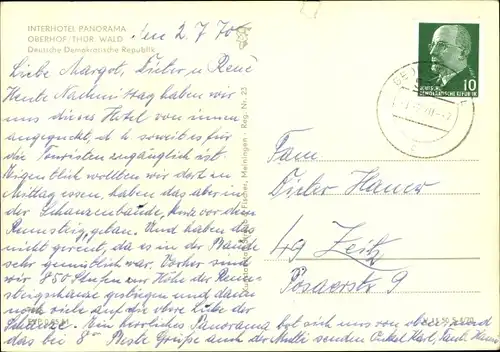 INTERHOTEL PANORAMA
OBERHOF/THÜR. WALD
Deutsche Demokratische Republik
den 2.7.70
Liebe Margot, Dieter u René
Heute Nachmittag haben wir
uns dieses Hotel von innen
angeguckt, d. h. soweit es für
die Touristen zugänglich ist.
Eigentlich wollten wir dort zu
Mittag essen, haben das aber in
der Schanzenbaude, kurz vor dem
Rennsteig, getan. Und haben das
nicht gereut, da es in der Baude
sehr gemütlich war. Vorher sind
wir 850 Stufen zur Höhe der Renn-
steigschanze gestiegen und dann
noch viele auf die obere Luke der
Schanze. Ein herrliches Panorama bot sich uns von oben und
das bei 8° Beste Grüße auch der Mutti senden Onkel Karl, Tante
Fam.
Dieter Hauer
49 Zeitz
Posaerstr 9
Fischer, Meiningen - Reg. Nr. 23
10
DEUTSCHE
DEMOKRATISCHE REPUBLIK